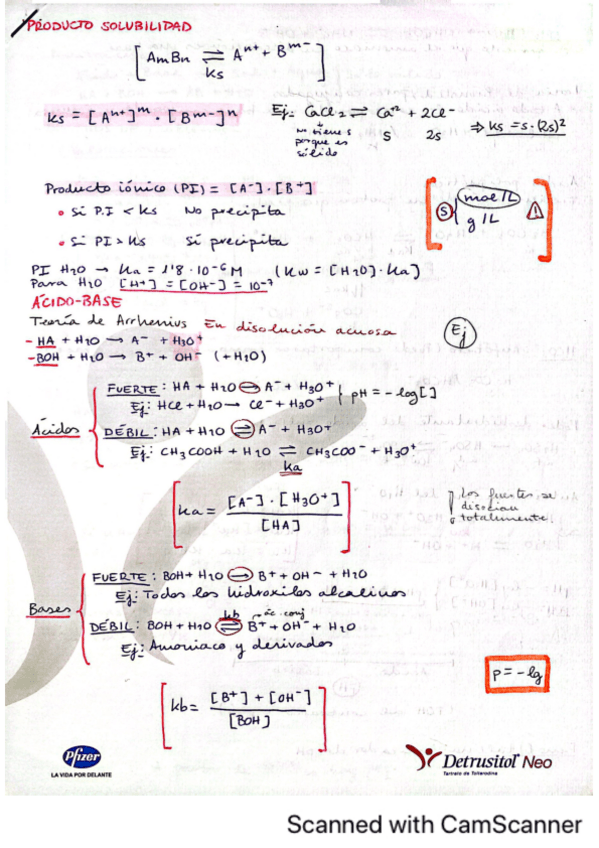 PRODUCTO SOLUBILIDAD
[AmBn ⇌ Aⁿ⁺ + Bᵐ⁻]
Ks
Ks = [Aⁿ⁺]ᵐ · [Bᵐ⁻]ⁿ
Ej: CaCl₂ ⇌ Ca⁺² + 2Cl⁻
No tiene s porque es sólido
s
2s
⇒ Ks = s·(2s)²
Producto iónico (PI) = [A⁻]·[B⁺]
• Si P.I < Ks No precipita
• Si PI > Ks Sí precipita
S mol/L
g/L
PI H₂O → Ka = 1'8 · 10⁻⁶ M (Kw = [H₂O]·Ka)
Para H₂O [H⁺] = [OH⁻] = 10⁻⁷
ÁCIDO-BASE
Teoría de Arrhenius En disolución acuosa
- HA + H₂O → A⁻ + H₃O⁺
- BOH + H₂O → B⁺ + OH⁻ (+H₂O)
Ej
Ácidos
FUERTE: HA + H₂O → A⁻ + H₃O⁺ } pH = -log[ ]
Ej: HCl + H₂O → Cl⁻ + H₃O⁺
DÉBIL: HA + H₂O ⇌ A⁻ + H₃O⁺
Ej: CH₃COOH + H₂O ⇌ CH₃COO⁻ + H₃O⁺
Ka
Ka = [A⁻] · [H₃O⁺] / [HA]
Los fuertes se disocian totalmente.
Bases
FUERTE: BOH + H₂O → B⁺ + OH⁻ + H₂O
Ej: Todos los hidroxilos alcalinos
kb ác. conj
DÉBIL: BOH + H₂O ⇌ B⁺ + OH⁻ + H₂O
Ej: Amoniaco y derivados
P = -lg
kb = [B⁺] + [OH⁻] / [BOH]
Pfizer
LA VIDA POR DELANTE
Detrusitol Neo
Tartrato de Tolterodina
Scanned with CamScanner